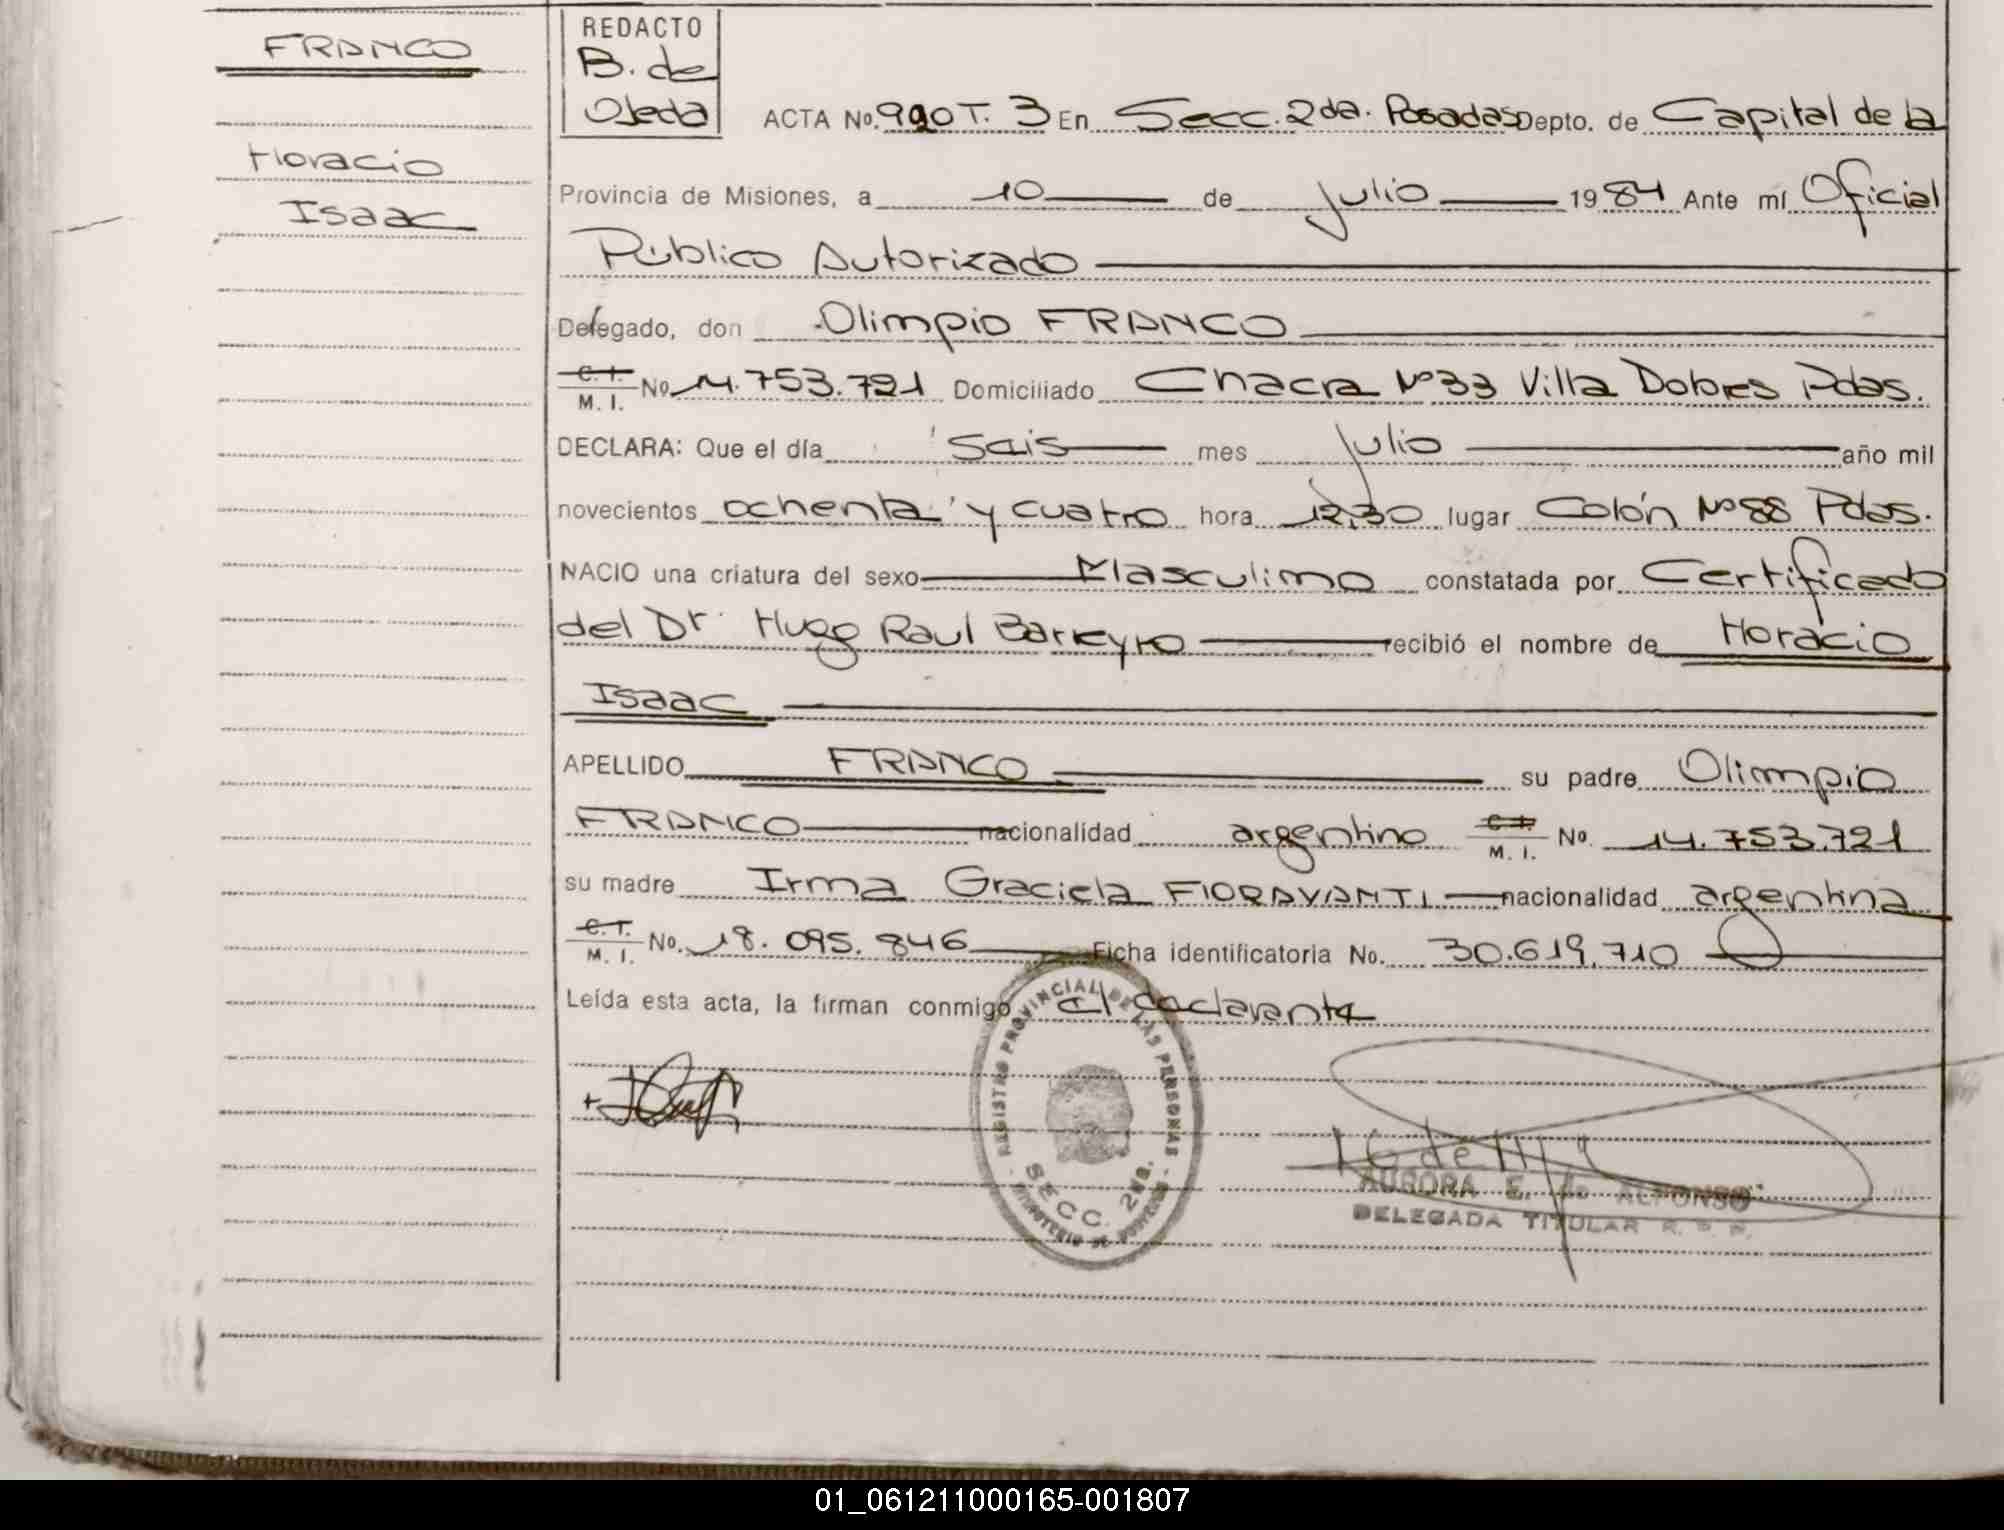 FRANCO
Horacio
Isaac
REDACTO
B. de
Ojeda
ACTA No. 990 T. 3 En Secc. 2da. Posadas Depto. de Capital de la
Provincia de Misiones, a 10 de Julio 1984 Ante mí Oficial
Público Autorizado
Delegado, don Olimpio FRANCO
C. I.
M. I. No. 14.753.721 Domiciliado Chacra Nº 33 Villa Dolores Pdas.
DECLARA: Que el día Seis mes Julio año mil
novecientos ochenta y cuatro hora 12,30 lugar Colón Nº 88 Pdas.
NACIO una criatura del sexo Masculino constatada por Certificado
del Dr. Hugo Raul Barreyro recibió el nombre de Horacio
Isaac
APELLIDO FRANCO su padre Olimpio
FRANCO nacionalidad argentino C. I. M. I. No. 14.753.721
su madre Irma Graciela FIORAVANTI nacionalidad argentina
C. I.
M. I. No. 18.095.846 Ficha identificatoria No. 30.619.710
Leída esta acta, la firman conmigo el declarante
REGISTRO PROVINCIAL DE LAS PERSONAS
SECC. 2da.
MINISTERIO DE GOBIERNO
AURORA E. de ALFONSO
DELEGADA TITULAR R. P. P.
01_061211000165-001807